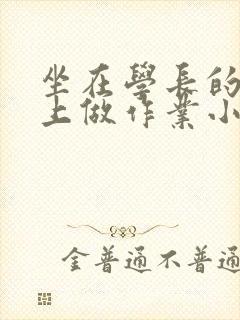 坐在學長的
上做作業小
金普通不普通